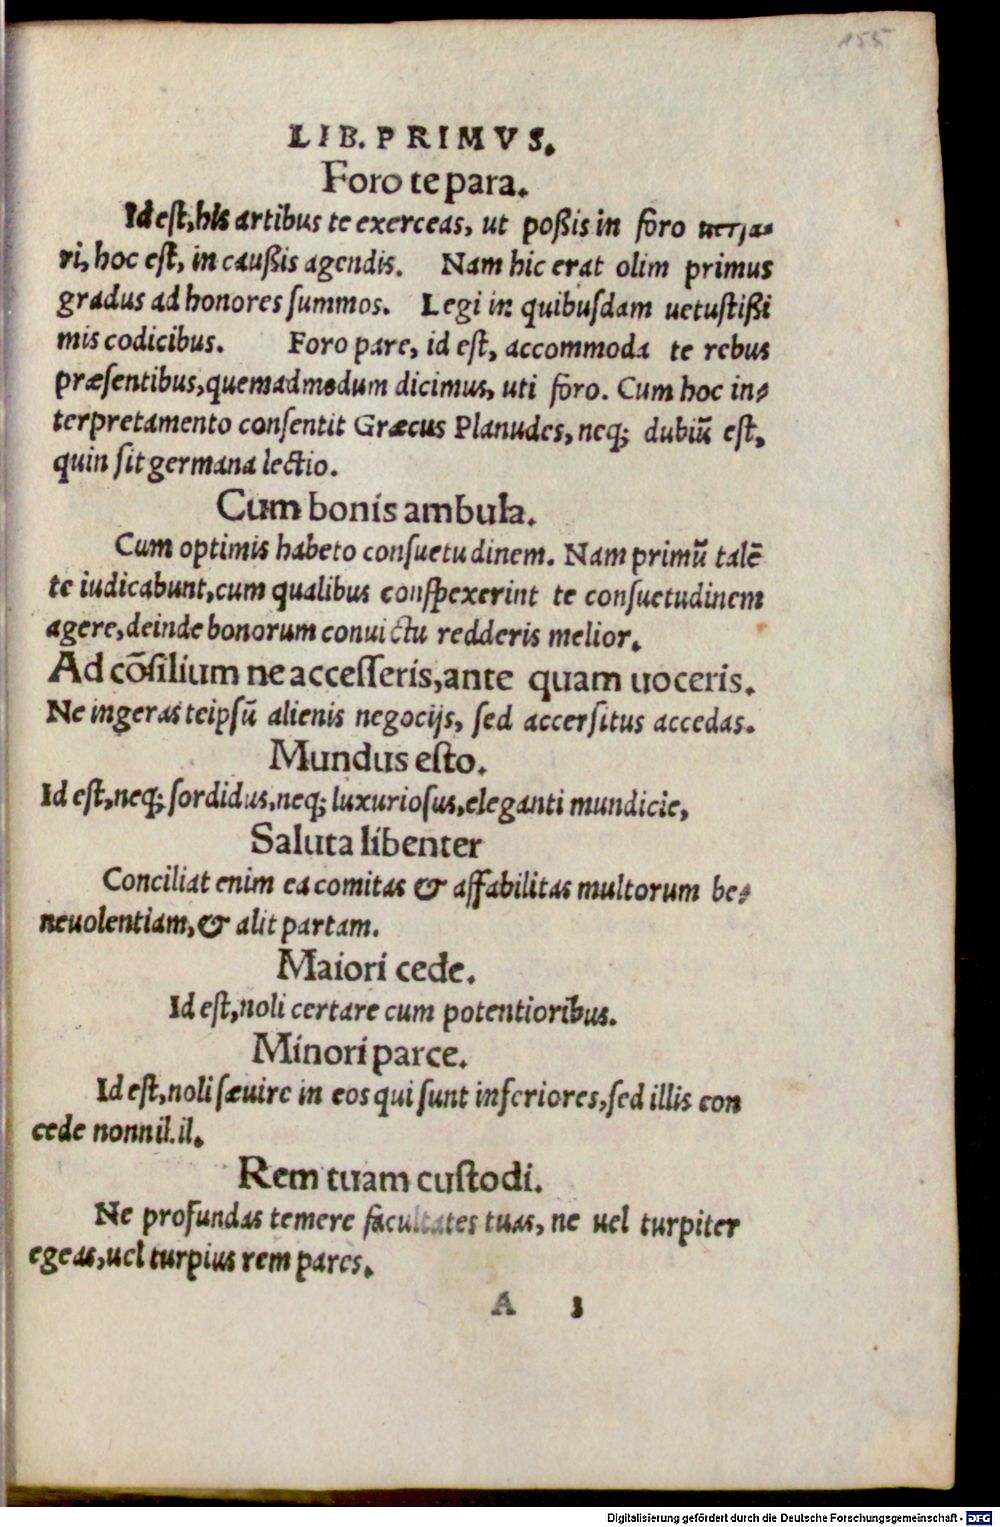 155
LIB. PRIMVS.
Foro te para.
Id eſt, his artibus te exerceas, ut poßis in foro uerſa-
ri, hoc eſt, in caußis agendis. Nam hic erat olim primus
gradus ad honores ſummos. Legi in quibuſdam uetuſtißi
mis codicibus. Foro pare, id eſt, accommoda te rebus
præſentibus, quemadmodum dicimus, uti foro. Cum hoc in-
terpretamento conſentit Græcus Planudes, neq; dubiũ eſt,
quin ſit germana lectio.
Cum bonis ambula.
Cum optimis habeto conſuetudinem. Nam primũ talẽ
te iudicabunt, cum qualibus conſpexerint te conſuetudinem
agere, deinde bonorum conuictu redderis melior.
Ad cõſilium ne acceſſeris, ante quam uoceris.
Ne ingeras teipſũ alienis negocijs, ſed accerſitus accedas.
Mundus eſto.
Id eſt, neq; ſordidus, neq; luxurioſus, eleganti mundicie,
Saluta libenter
Conciliat enim ea comitas & affabilitas multorum be-
neuolentiam, & alit partam.
Maiori cede.
Id eſt, noli certare cum potentioribus.
Minori parce.
Id eſt, noli ſæuire in eos qui ſunt inferiores, ſed illis con
cede nonnil.il.
Rem tuam cuſtodi.
Ne profundas temere facultates tuas, ne uel turpiter
egeas, uel turpius rem pares.
A 3
Digitalisierung gefördert durch die Deutsche Forschungsgemeinschaft - DFG